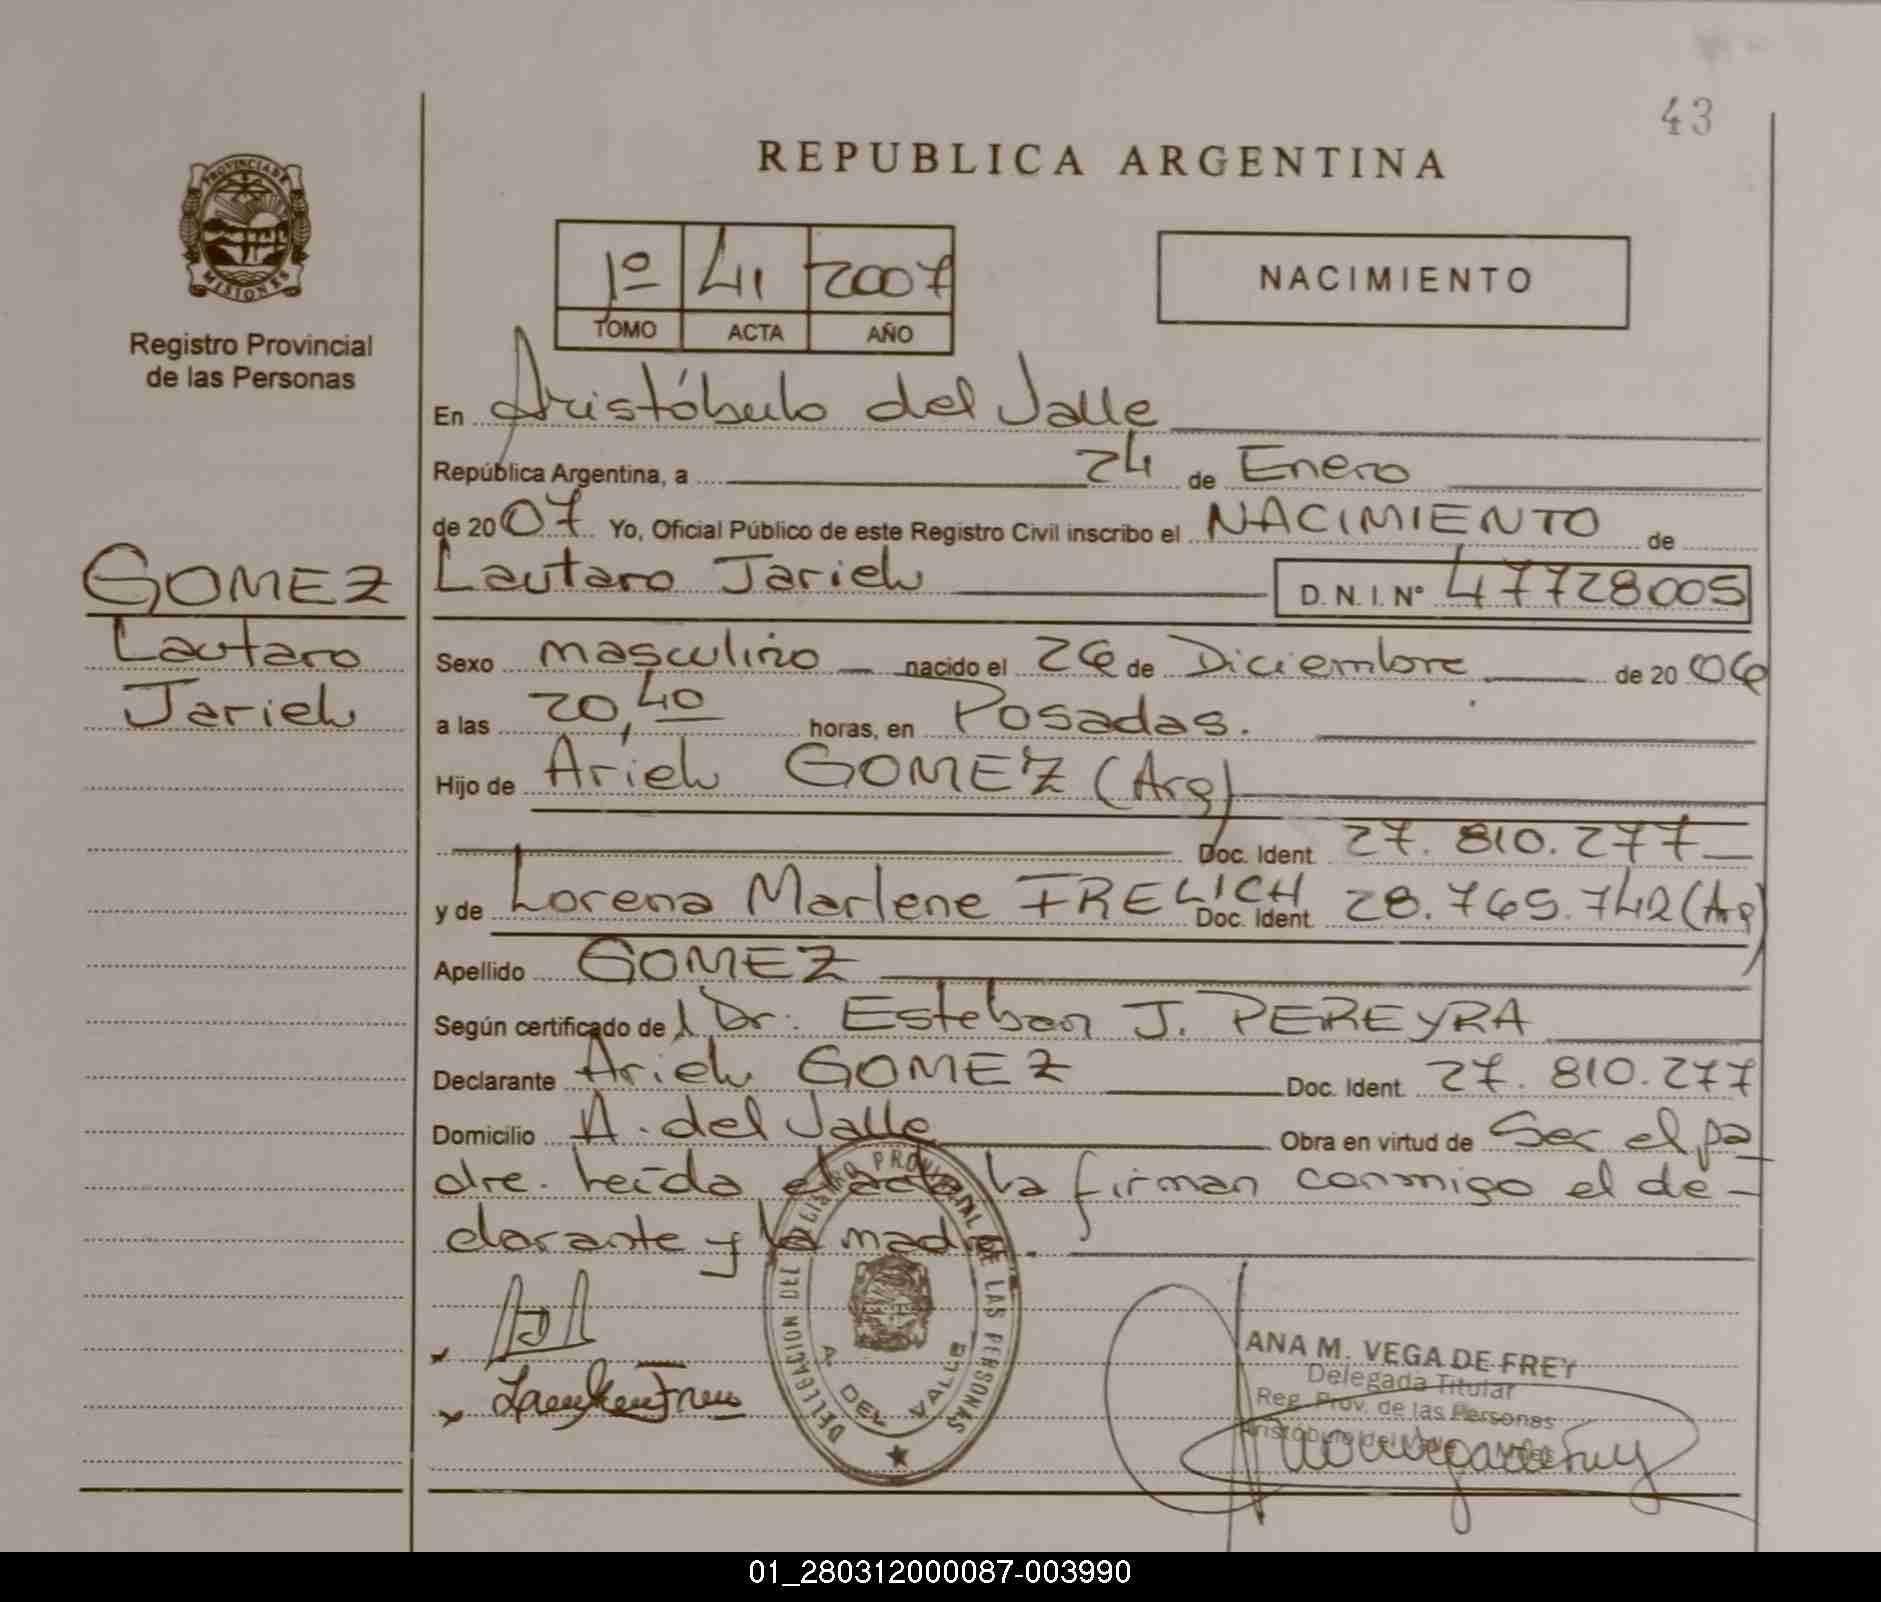 43
REPUBLICA ARGENTINA
PROVINCIA DE
MISIONES
Registro Provincial
de las Personas
1º 41 2007
TOMO ACTA AÑO
NACIMIENTO
En Aristóbulo del Valle
República Argentina, a 24 de Enero
de 2007 Yo, Oficial Público de este Registro Civil inscribo el NACIMIENTO de
GOMEZ
Lautaro
Jariel
Lautaro Jariel D.N.I. N° 47728005
Sexo masculino nacido el 26 de Diciembre de 2006
a las 20,40 horas, en Posadas.
Hijo de Ariel GOMEZ (Arg)
Doc. Ident. 27.810.277
y de Lorena Marlene FRELICH Doc. Ident. 28.765.742 (Arg)
Apellido GOMEZ
Según certificado del Dr. Esteban J. PEREYRA
Declarante Ariel GOMEZ Doc. Ident. 27.810.277
Domicilio A. del Valle Obra en virtud de Ser el pa
dre. Leída el acta la firman conmigo el de-
clarante y la madre.
DELEGACION DEL REGISTRO PROVINCIAL DE LAS PERSONAS
A. DEL VALLE
ANA M. VEGA DE FREY
Delegada Titular
Reg. Prov. de las Personas
Aristóbulo del Valle
01_280312000087-003990